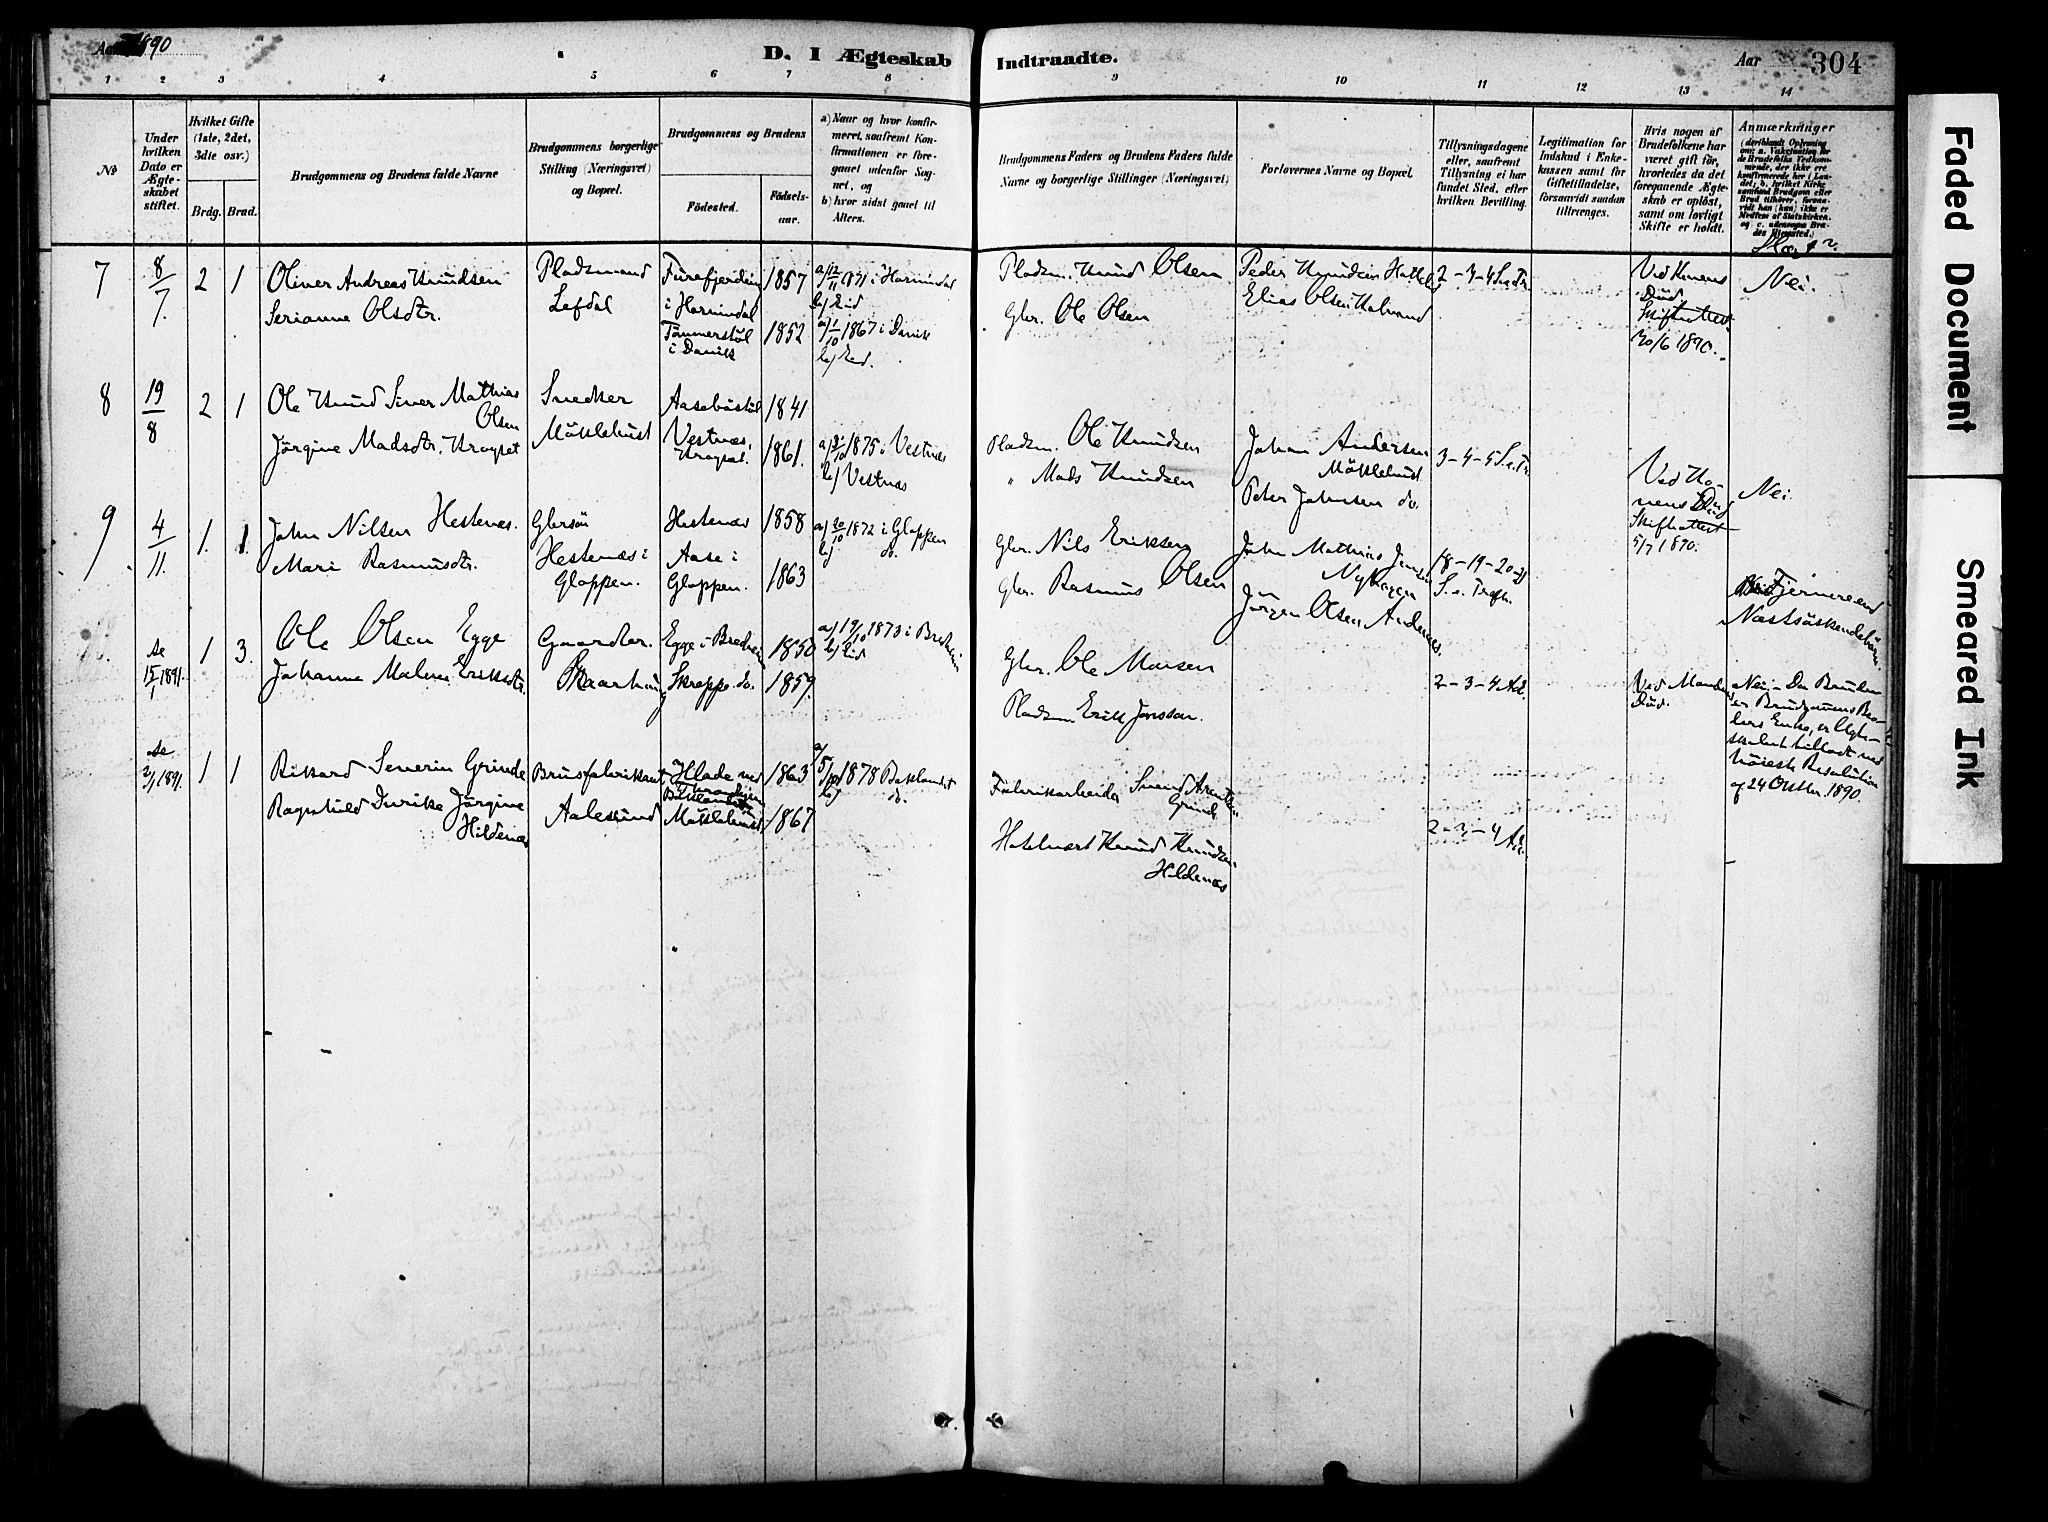 Aar 1890
D. I Ægteskab Indtraadte.
Aar 304
1 2 3 4 5 6 7 8 9 10 11 12 13 14
No
Under hvilken Dato er Ægteskabet stiftet.
Hvilket Gifte (1ste, 2det, 3die osv.)
Brdg. Brud.
Brudgommens og Brudens fulde Navne
Brudgommens borgerlige Stilling (Næringsvei) og Bopæl.
Brudgommens og Brudens
Fødested.
Fødselsaar.
a) Naar og hvor konfirmeret, saafremt Konfirmationen er foregaaet udenfor Sognet, og
b) hvor sidst gaaet til Alters.
Brudgommens Faders og Brudens Faders fulde Navne og borgerlige Stillinger (Næringsvei)
Forlovernes Navne og Bopæl.
Tillysningsdagene eller, saafremt Tillysning ei har fundet Sted, efter hvilken Bevilling.
Legitimation for Indskud i Enkekassen samt for Giftetilladelse, forsaavidt saadan tiltrænges.
Hvis nogen af Brudefolkene har været gift før, hvorledes da det foregaaende Ægteskab er opløst, samt om lovligt Skifte er holdt.
Anmærkninger
7 8/7 2 1
Oliver Andreas Knudsen
Serianne Olsdtr.
Pladsmand
Lefdal
i Hornindal
Tømmerstøl
i Davik
1857
1852
a/ 12/11 1871 i Hornindal
b/ Eid
a/ 1/10 1867 i Davik
b/ Eid.
Pladsm. Knud Olsen
Gbr. Ole Olsen
Peder Knudsen
Elias Olsen
2-3-4 S.e.Tr.
Ved Konens
Død
Skifteattest
30/6 1890.
Nei.
8 19/8 2 1
Ole Knud Siver Mathias
Olsen
Jörgine Madsdtr.
Snedker
Möklebust
Aasebøstøl
Vestnæs,
1841
1861.
1875 i Vestnæs
b/ Vestnæs
Pladsm. Ole Knudsen
" Mads Knudsen
Johan Andersen
Möklebust
Peter Johnsen do.
3-4-5 S.e.Tr.
Ved Konens Død
Skifteattest
5/7 1890.
Nei.
9 4/11. 1. 1.
John Nilsen Hestenæs.
Mari Rasmusdtr.
Gbrsøn
Hestenæs i
Gloppen.
Hestenæs
Aase i
Gloppen.
1858
1863
a/ 20/10 1872 i Gloppen
b/ do.
Gbr. Nils Eriksen
Gbr. Rasmus Olsen
John Mathias Jensen
Nyhagen
Jörgen Olsen Andenæs.
18-19-20
S. e. Trefh.
Fjernere end
Næstsöskendebørn.
15/1 1891. 1 3.
Ole Olsen Egge
Johanne Malene Eriksdtr.
Gaardbr.
Egge i Bredheim
Skreppe do.
1850
1859.
1873 i Bredheim
b/ Eid
Gbr. Ole Monsen
Pladsm. Erik Jonsson.
2-3-4 Ad.
Ved Mandens
Død.
Nei. - Da Bruden
er Brudgomens Broders Enke, er Ægteskabet tilladt ved
høieste Resolution
af 24 Oktbr. 1890.
2/1 1891. 1 1
Rikard Severin Grinde
Ragnhild Inrike Jörgine
Hildenæs
Brusfabrikant
Aalesund
Hlade ved
Möklebust
1863
1867
a/ 5/10 1878 Baklandet
b/ do.
Fabrikarbeider Svend
Grinde
Hotelvært Knud Knudsen
Hildenæs
2-3-4 Ad.
Faded Document
Smeared Ink